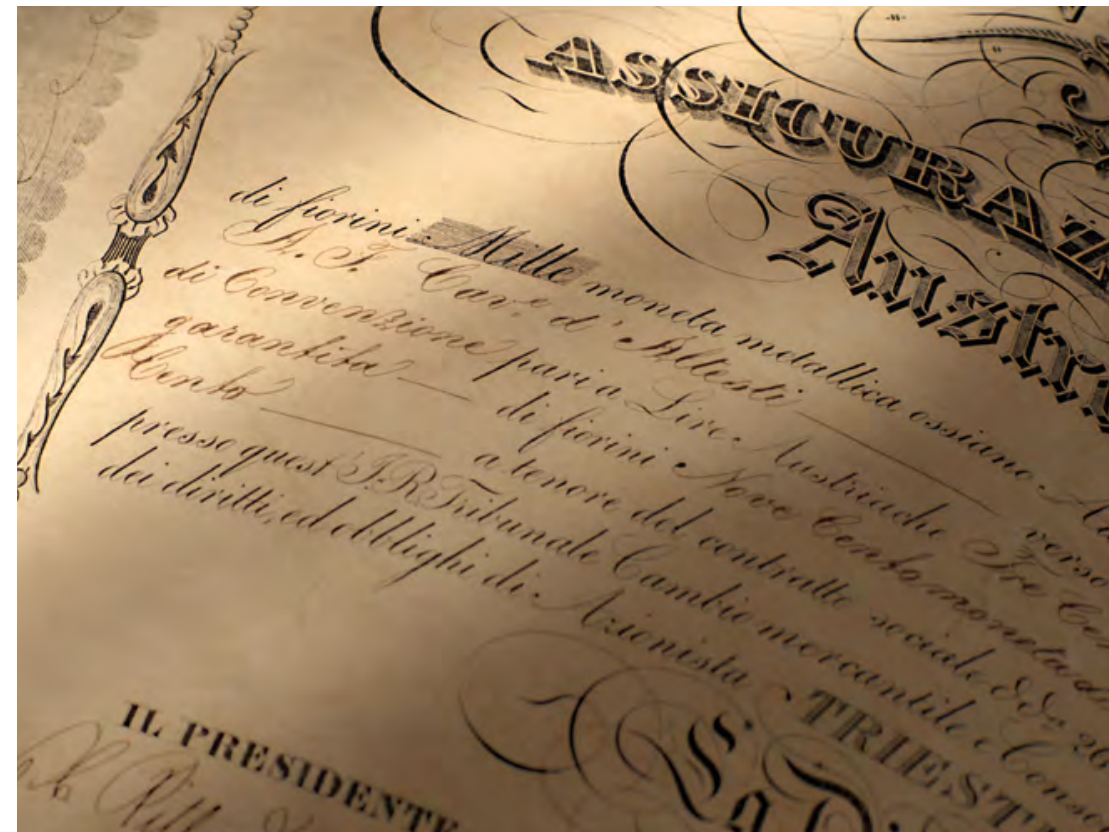 ASSICURAZ
Austr
di fiorini Mille moneta metallica ossiano
A. F. Cav.e d'Allesti verso
di Convenzione pari a Lire Austriache Tre Cen
garantita — di fiorini Nove Cento moneta d
Cento — a tenore del contratto sociale dd.o 20
presso quest' I.R. Tribunale Cambio mercantile e Conso
dei diritti, ed obblighi di Azionista
TRIEST
La D
IL PRESIDENTE